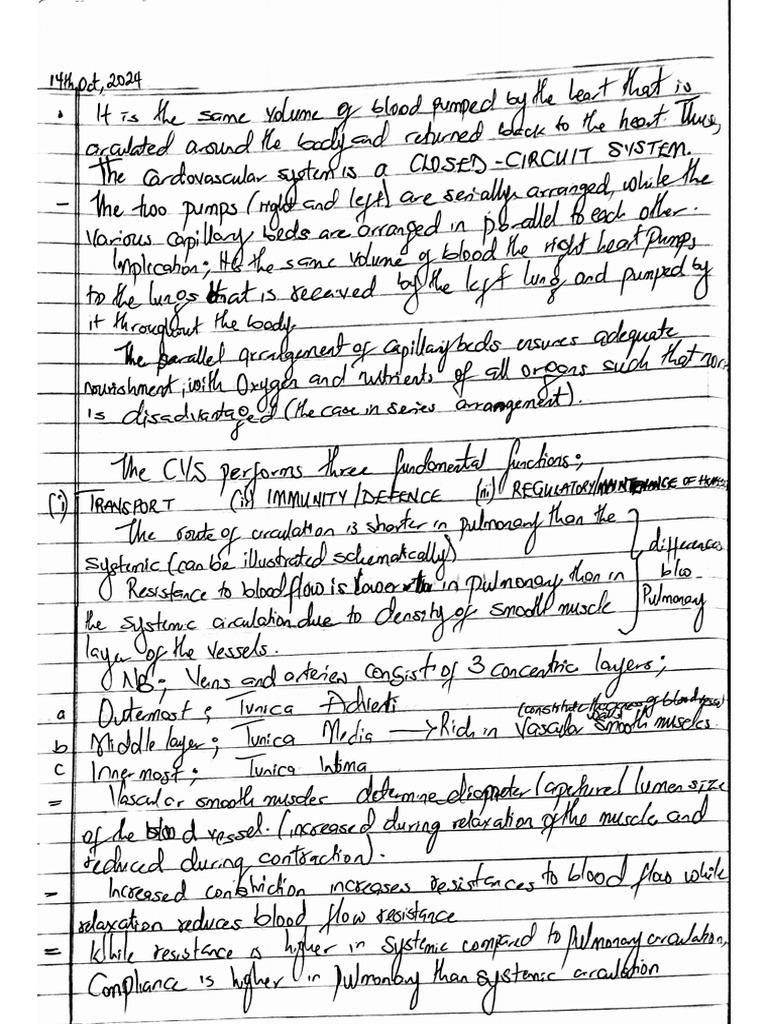 14th Oct, 2024
• It is the same volume of blood pumped by the heart that is
circulated around the body and returned back to the heart. Thus,
The Cardovascular system is a CLOSED-CIRCUIT SYSTEM.
- The two pumps (right and left) are serially arranged, while the
various capillary beds are arranged in parallel to each other.
Implication; It's the same volume of blood the right heart pumps
to the lungs that is received by the left lung and pumped by
it throughout the body
The parallel arrangement of capillary beds ensures adequate
nourishment, with Oxygen and nutrients of all organs such that non
is disadvantaged (the case in series arrangement).
The CVS performs three fundamental functions;
(i) TRANSPORT (ii) IMMUNITY/DEFENCE (iii) REGULATORY/MAINTENANCE OF
The route of circulation is shorter in pulmonary than the
systemic (can be illustrated schematically)
differences
Resistance to blood flow is lower in pulmonary than in
blw
the systemic circulation due to density of smooth muscle
Pulmonary
layer of the vessels.
NB; Veins and arteries consist of 3 concentric layers;
a Outermost; Tunica
(constitute thickness of blood vessel
walls)
b Middle layer; Tunica Media → Rich in Vascular smooth muscles.
c Innermost; Tunica Intima
= Vascular smooth muscles determine diameter/apeture/lumen size
of the blood vessel. (increased during relaxation of the muscle and
reduced during contraction).
- Increased constriction increases resistances to blood flow while
relaxation reduces blood flow resistance
= While resistance is higher in systemic compared to pulmonary circulation,
Compliance is higher in pulmonary than systemic circulation